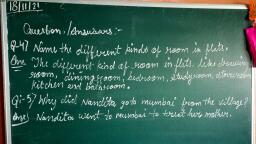 18/11/21
Question/Answers:-
Q-4) Name the different kinds of room in flats.
Ans The different kind of room in flats. like drawing
room, dining room, bedroom, study room, storeroom
kitchen and bathroom.
Q-5) Why did Nandita go to mumbai from the village?
Ans) Nandita went to mumbai to treat her mother.